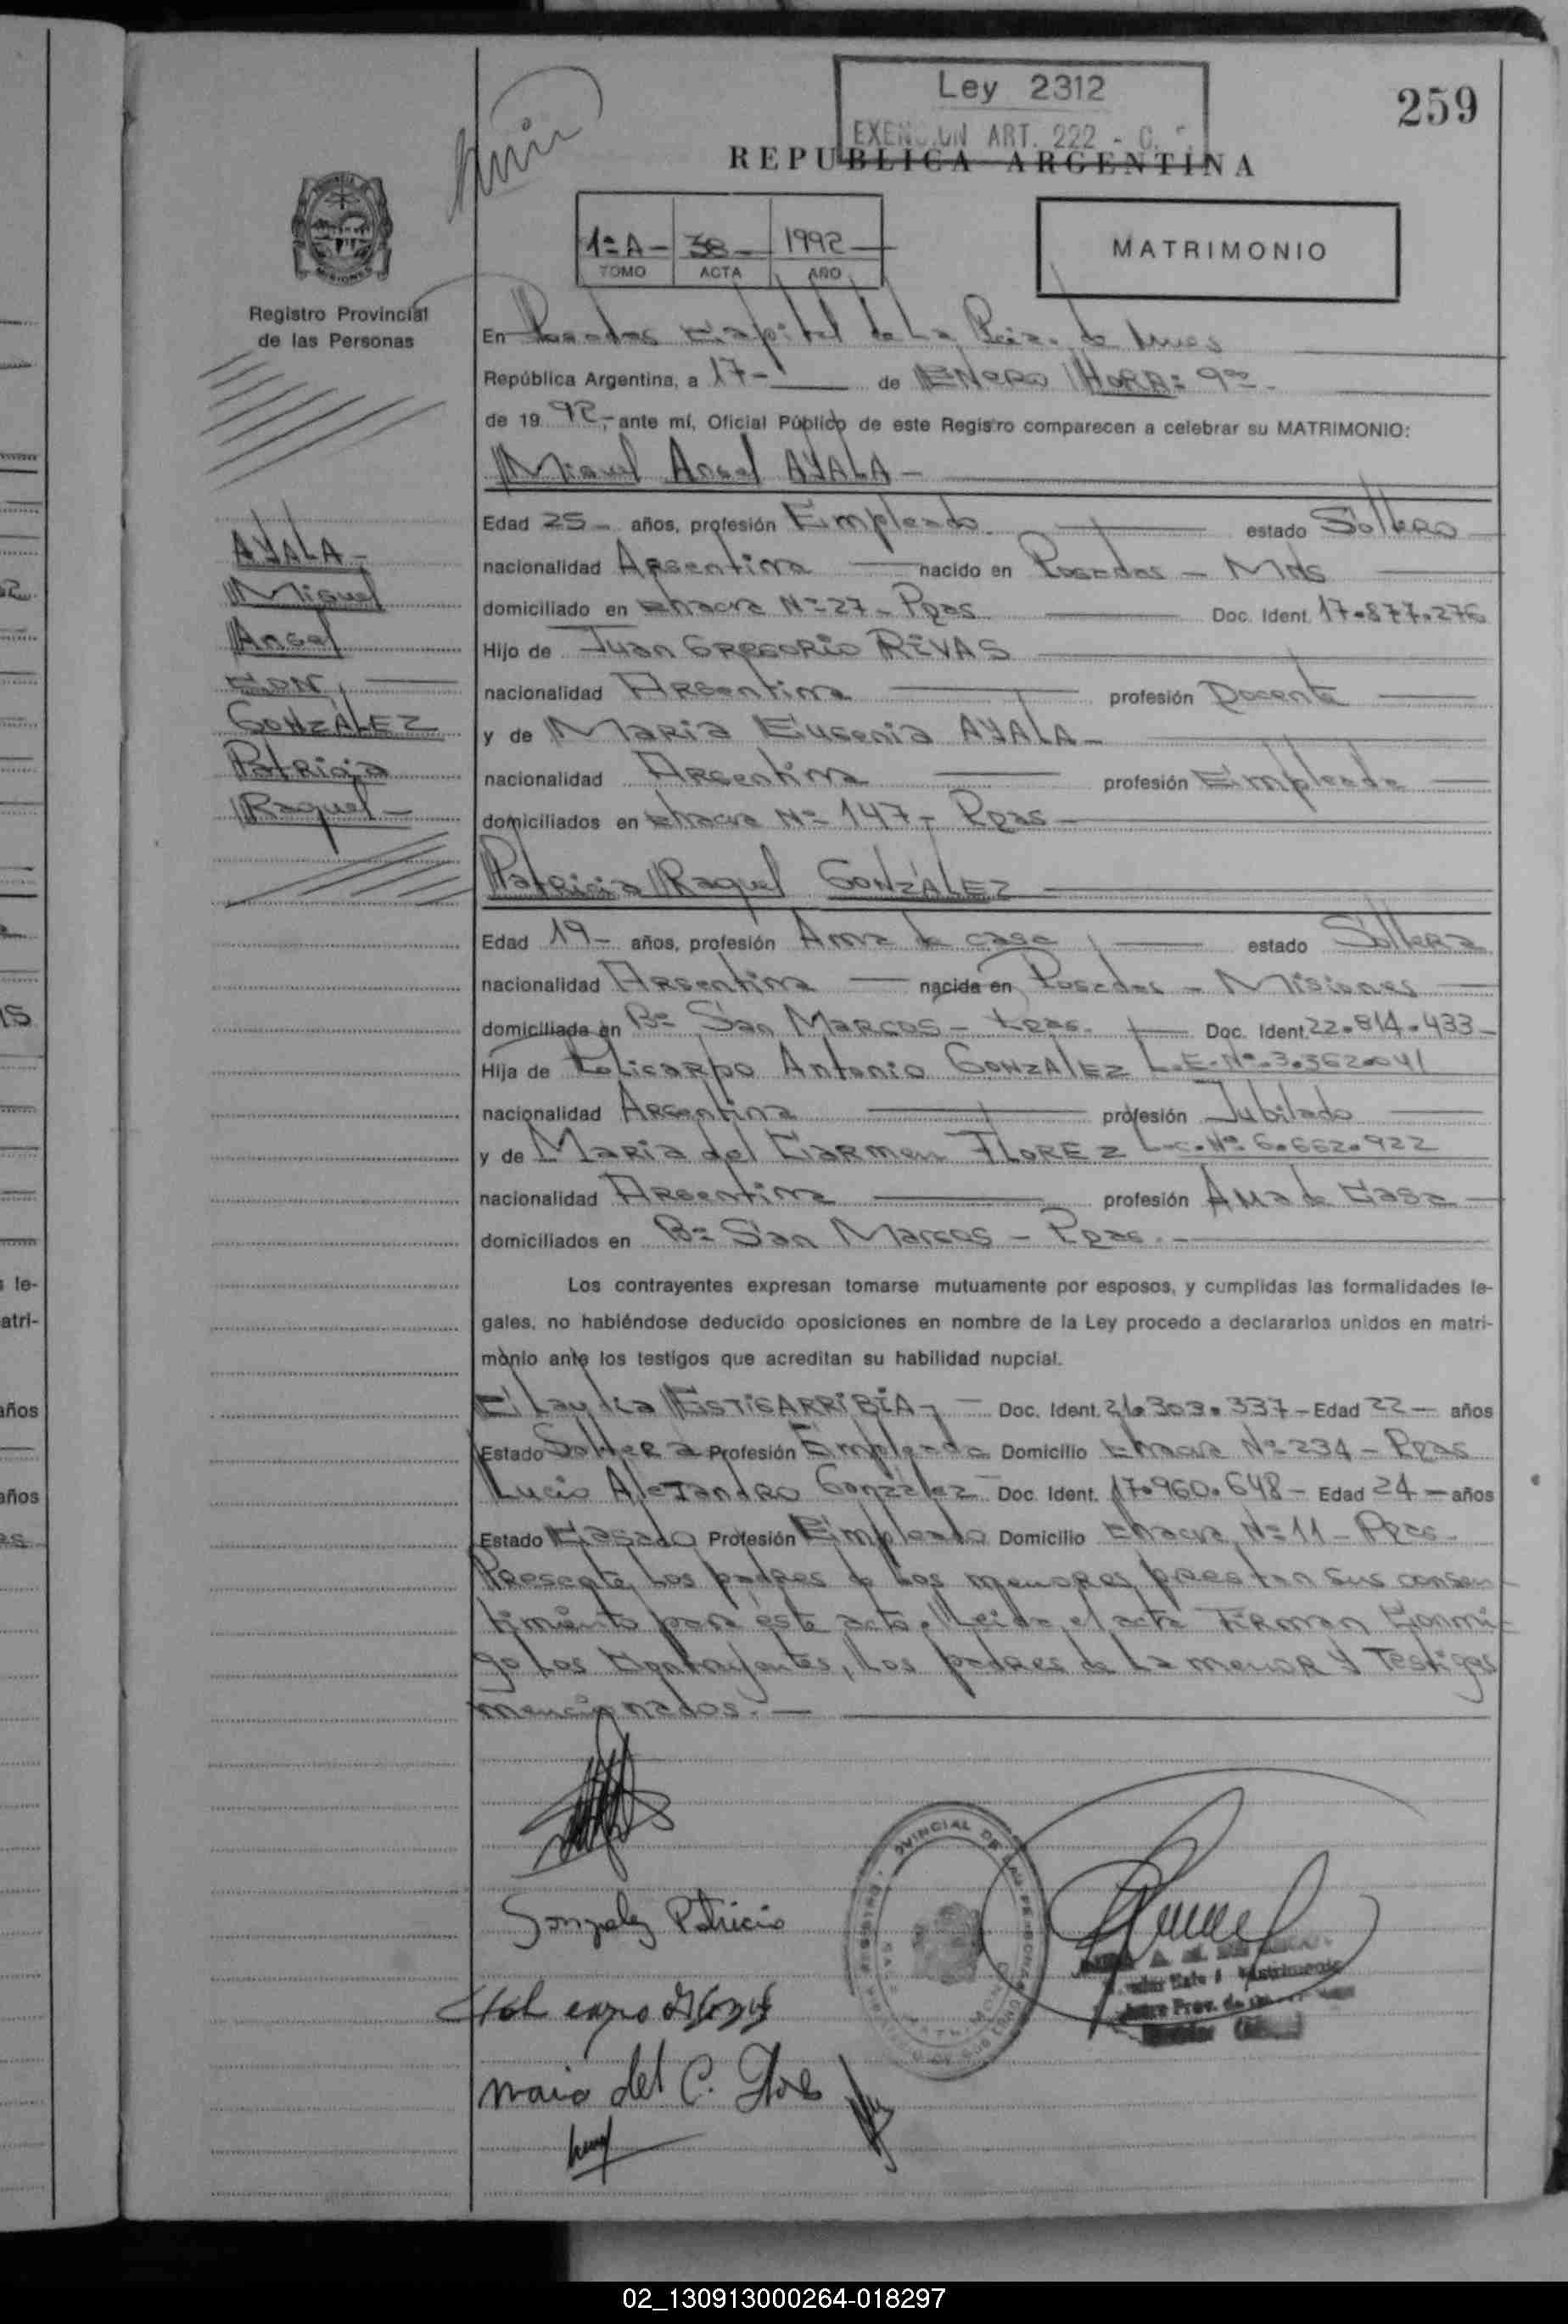 Ley 2312
259
ART. 222
REPUBLICA ARGENTINA
1ª A - 38 - 1992
TOMO ACTA AÑO
MATRIMONIO
Registro Provincial
de las Personas
En Posadas Capital de La Pcia. de Mnes
República Argentina, a 17 - de ENERO HORA: 9
de 1992, ante mí, Oficial Público de este Registro comparecen a celebrar su MATRIMONIO:
Miguel Angel AYALA -
Edad 25 - años, profesión Empleado estado Soltero
nacionalidad Argentina nacido en Posadas - Mnes
domiciliado en Chacra Nº 27 - Pdas Doc. Ident. 17.877.276
Hijo de Juan GREGORIO RIVAS
nacionalidad Argentina profesión Docente
y de MARIA Eugenia AYALA -
nacionalidad Argentina profesión Empleada
domiciliados en Chacra Nº 147 - Pdas
AYALA -
Miguel
Angel
CON,
GONZÁLEZ
Patricia
Raquel -
Patricia Raquel GONZÁLEZ
Edad 19 - años, profesión Ama de casa estado Soltera
nacionalidad Argentina nacida en Posadas - Misiones
domiciliada en Bº San MARCOS - Pdas. Doc. Ident. 22.814.433 -
Hija de Policarpo Antonio GONZALEZ L.E. Nº 3.562.041
nacionalidad Argentina profesión Jubilado
y de MARIA del Carmen FLOREZ L.C. Nº 6.662.922
nacionalidad Argentina profesión Ama de Casa
domiciliados en Bº San Marcos - Pdas.
Los contrayentes expresan tomarse mutuamente por esposos, y cumplidas las formalidades le-
gales, no habiéndose deducido oposiciones en nombre de la Ley procedo a declararlos unidos en matri-
monio ante los testigos que acreditan su habilidad nupcial.
Claudia ESTIGARRIBIA - Doc. Ident. 21.303.337 - Edad 22 - años
Estado Soltera Profesión Empleada Domicilio Chacra Nº 234 - Pdas
Lucio Alejandro González Doc. Ident. 17.960.648 - Edad 24 - años
Estado Casado Profesión Empleado Domicilio Chacra Nº 11 - Pdas -
Presente los padres de los menores prestan sus consen-
timiento para éste acto. Leida el acta Firman Conmi-
go los Contrayentes, los padres de la menor y Testigos
mencionados. -
Gonzalez Patricia
Maria del C. Flores
02_130913000264-018297